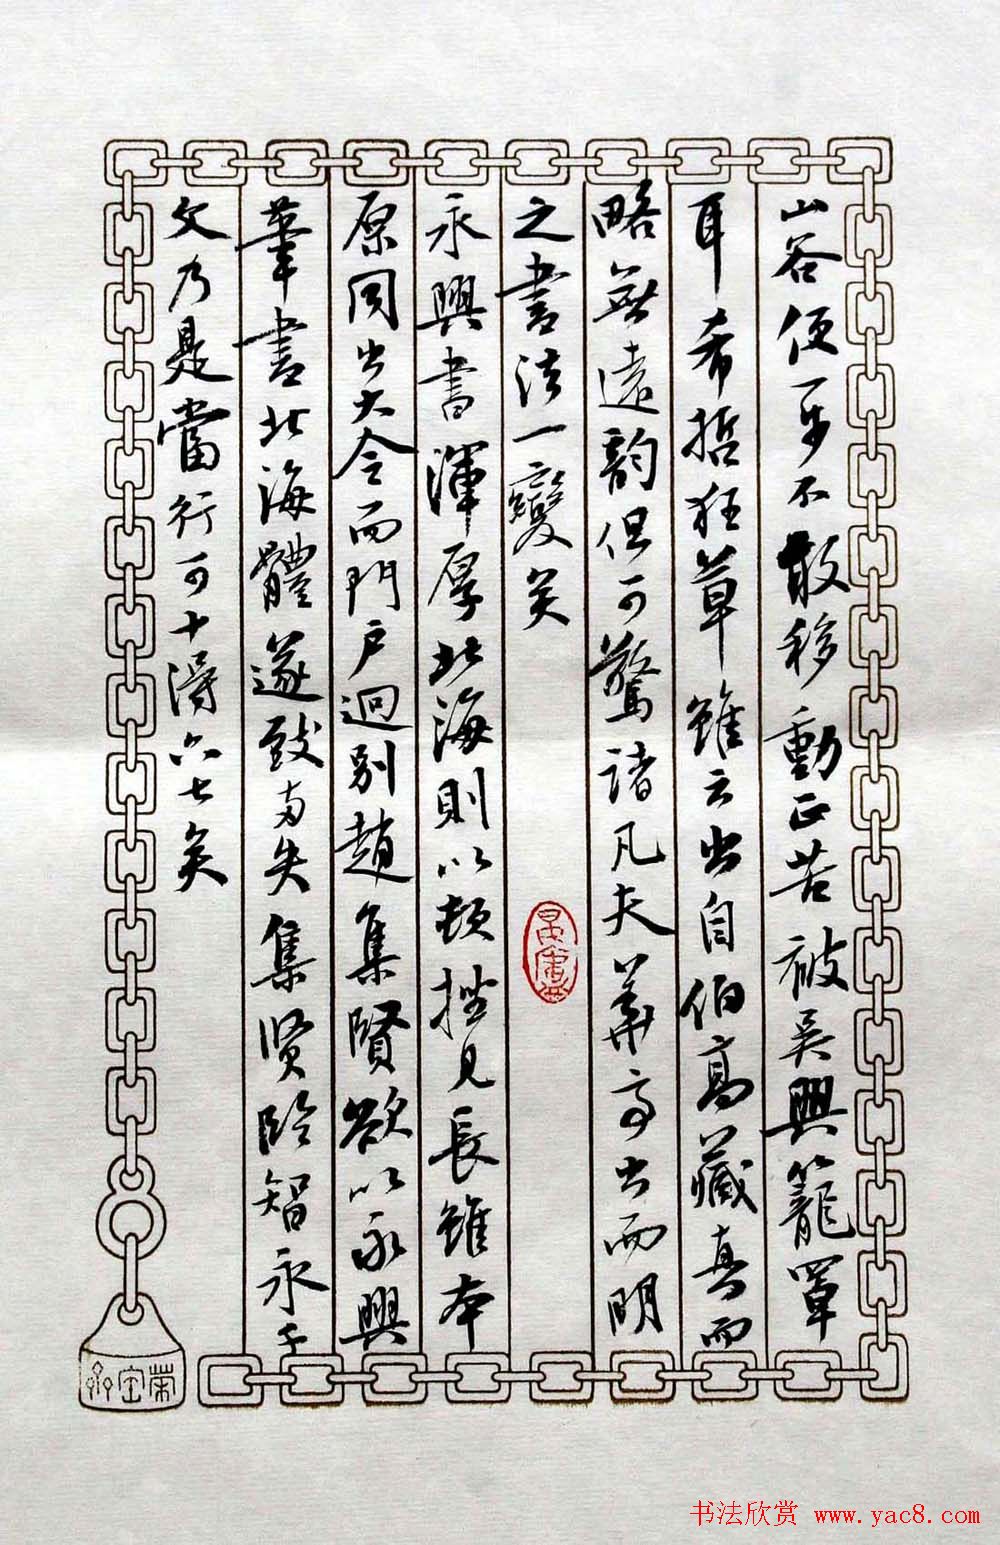 山谷便一步不敢移動正苦被吳興籠罩
耳希哲狂草雖云出自伯高藏真而
略無遠韵但可驚諸凡夫華亭出而明
之書法一變矣
永興書渾厚北海則以頓挫見長雖本
原同出大令而門戶迥別趙集賢欲以永興
筆書北海體遂致兩失集贤臨智永千
文乃是當行可十得六七矣
榮宝齋
书法欣赏 www.yac8.com